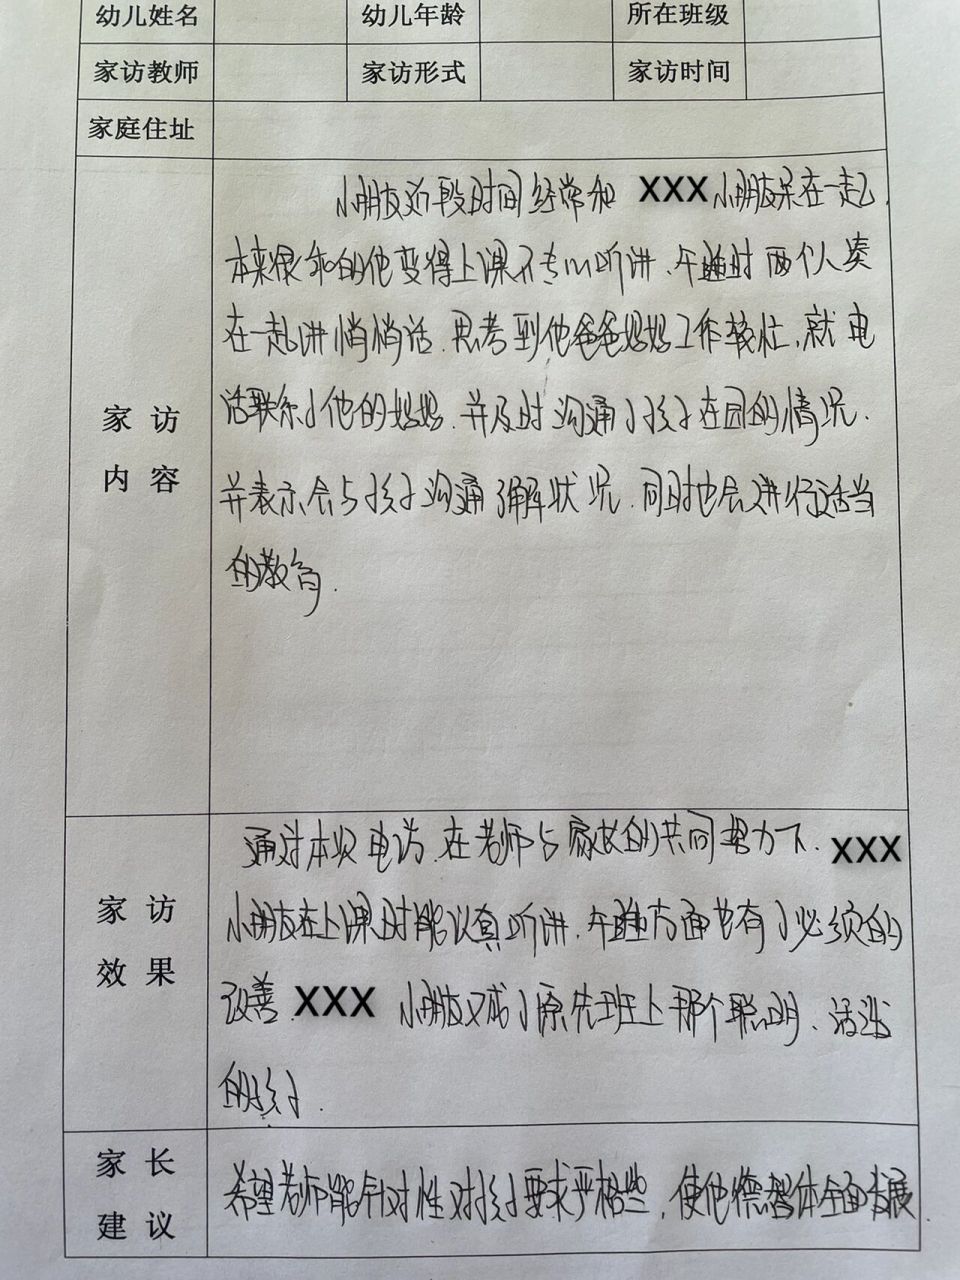 幼儿姓名 幼儿年龄 所在班级
家访教师 家访形式 家访时间
家庭住址
家访内容
小朋友近段时间经常和 XXX 小朋友呆在一起,
本来很乖的他变得上课不专心听讲、午睡时两个人凑
在一起讲悄悄话. 思考到他爸爸妈妈工作较忙, 就电
话联系了他的妈妈. 并及时沟通了孩子在园的情况.
并表示会与孩子沟通了解状况. 同时也会进行适当
的教育.
家访效果
通过本次电访. 在老师与家长的共同努力下. XXX
小朋友在上课时能认真听讲. 午睡方面也有了必须的
改善. XXX 小朋友又成了原先班上那个聪明、活泼
的孩子.
家长建议
希望老师能针对性对孩子要求严格些, 使他德智体全面发展